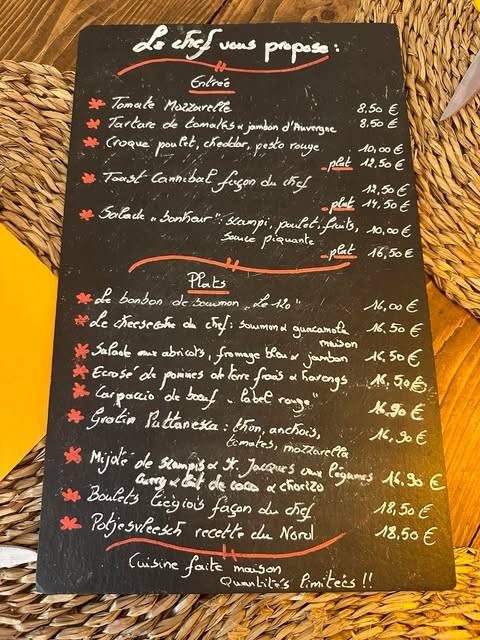 Le chef vous propose :
Entrée
Tomate Mozzarelle 8.50 €
Tartare de tomates & jambon d'Auvergne 8.50 €
Croque poulet, cheddar, pesto rouge 10,00 €
plat 12,50 €
Toast Cannibal façon du chef 12,50 €
plat 14,50 €
Salade "bonheur" : scampi, poulet, fruits, 10,00 €
sauce piquante
plat 16,50 €
Plats
Le bonbon de saumon "Le 120" 16,00 €
Le cheesecake du chef : saumon & guacamole 16,50 €
maison
Salade aux abricots, fromage bleu & jambon 16,50 €
Ecrasé de pommes de terre frais & harengs 16,50 €
Carpaccio de bœuf "label rouge" 16,90 €
Gratin Puttanesca : thon, anchois, 16,90 €
tomates, mozzarella
Mijoté de scampis & St. Jacques aux légumes 16,90 €
curry & lait de coco & chorizo
Boulets Liégiois façon du chef 18,50 €
Potjesvleesch recette du Nord 18,50 €
Cuisine faite maison
Quantités limitées !!